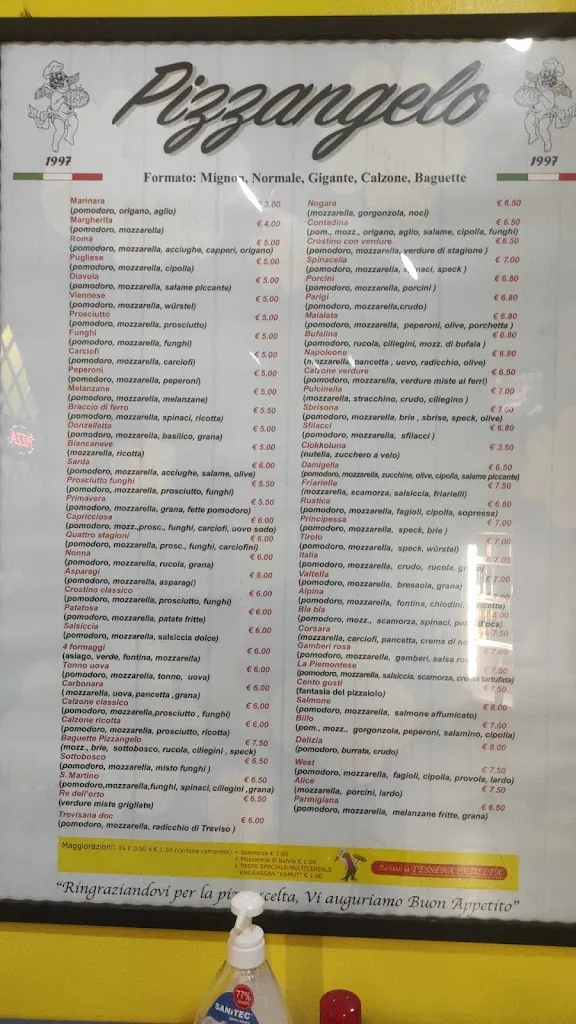 Pizzangelo
1997
1997
Formato: Mignon, Normale, Gigante, Calzone, Baguette
Marinara € 3.00
(pomodoro, origano, aglio)
Margherita € 4.00
(pomodoro, mozzarella)
Roma € 5.00
(pomodoro, mozzarella, acciughe, capperi, origano)
Pugliese € 5.00
(pomodoro, mozzarella, cipolla)
Diavola € 5.00
(pomodoro, mozzarella, salame piccante)
Viennese € 5.00
(pomodoro, mozzarella, würstel)
Prosciutto € 5.00
(pomodoro, mozzarella, prosciutto)
Funghi € 5.00
(pomodoro, mozzarella, funghi)
Carciofi € 5.00
(pomodoro, mozzarella, carciofi)
Peperoni € 5.00
(pomodoro, mozzarella, peperoni)
Melanzane € 5.00
(pomodoro, mozzarella, melanzane)
Braccio di ferro € 5.50
(pomodoro, mozzarella, spinaci, ricotta)
Donzelletta € 5.00
(pomodoro, mozzarella, basilico, grana)
Biancaneve € 5.00
(mozzarella, ricotta)
Sarda € 6.00
(pomodoro, mozzarella, acciughe, salame, olive)
Prosciutto funghi € 5.50
(pomodoro, mozzarella, prosciutto, funghi)
Primavera € 5.50
(pomodoro, mozzarella, grana, fette pomodoro)
Capricciosa € 6.00
(pomodoro, mozz.,prosc., funghi, carciofi, uovo sodo)
Quattro stagioni € 6.00
(pomodoro, mozzarella, prosc., funghi, carciofini)
Nonna € 6.00
(pomodoro, mozzarella, rucola, grana)
Asparagi € 6.00
(pomodoro, mozzarella, asparagi)
Crostino classico € 6.00
(pomodoro, mozzarella, prosciutto, funghi)
Patatosa € 6.00
(pomodoro, mozzarella, patate fritte)
Salsiccia € 6.00
(pomodoro, mozzarella, salsiccia dolce)
4 formaggi € 6.00
(asiago, verde, fontina, mozzarella)
Tonno uova € 6.00
(pomodoro, mozzarella, tonno, uova)
Carbonara € 6.00
( mozzarella, uova,pancetta ,grana)
Calzone classico € 6.00
(pomodoro, mozzarella,prosciutto , funghi)
Calzone ricotta € 6.00
(pomodoro, mozzarella, prosciutto, ricotta)
Baguette Pizzangelo € 7.50
(mozz., brie, sottobosco, rucola, ciliegini , speck)
Sottobosco € 6.50
(pomodoro, mozzarella, misto funghi )
S.Martino € 6.50
(pomodoro,mozzarella,funghi, spinaci,ciliegini ,grana)
Re dell'orto € 6.50
(verdure miste grigliate)
Trevisana doc € 6.00
(pomodoro, mozzarella, radicchio di Treviso )
Nogara € 6.50
(mozzarella, gorgonzola, noci)
Contadina € 6.50
(pom., mozz., origano, aglio, salame, cipolla, funghi)
Crostino con verdure € 6.50
(pomodoro, mozzarella, verdure di stagione )
Spinacella € 7.00
(pomodoro, mozzarella, spinaci, speck )
Porcini € 6.80
(pomodoro, mozzarella, porcini )
Parigi € 6.80
(pomodoro, mozzarella,crudo)
Maialata € 6.80
(pomodoro, mozzarella, peperoni, olive, porchetta )
Bufalina € 6.80
(pomodoro, rucola, ciliegini, mozz. di bufala )
Napoleone € 6.80
(mozzarella, pancetta , uovo, radicchio, olive)
Calzone verdure € 6.50
(pomodoro, mozzarella, verdure miste ai ferri)
Pulcinella € 7.00
(mozzarella, stracchino, crudo, ciliegino )
Sbrisona € 7.00
(pomodoro, mozzarella, brie , sbrise, speck, olive)
Sfilacci € 6.80
(pomodoro, mozzarella, sfilacci )
Ciokkoluna € 3.50
(nutella, zucchero a velo)
Damigella € 6.50
(pomodoro, mozzarella, zucchine, olive, cipolla, salame piccante)
Friariella € 7.50
(mozzarella, scamorza, salsiccia, friarielli)
Rustica € 6.80
(pomodoro, mozzarella, fagioli, cipolla, sopressa)
Principessa € 7.00
(pomodoro, mozzarella, speck, brie )
Tirolo € 7.00
(pomodoro, mozzarella, speck, würstel)
Italia € 7.00
(pomodoro, mozzarella, crudo, rucola,
Valtella € 7.00
(pomodoro, mozzarella, bresaola, grana)
Alpina
(pomodoro, mozzarella, fontina, chiodini, pancetta)
Bla bla
(pomodoro, mozz., scamorza, spinaci, petto d'oca)
Corsara 7.50
(mozzarella, carciofi, pancetta, crema di
Gamberi rosa € 7.00
(pomodoro, mozzarella, gamberi, salsa rosa
La Piemontese € 7.50
(pomodoro, mozzarella, salsiccia, scamorza, crema tartufata)
Cento gusti € 7.50
(fantasia del pizzaiolo)
Salmone € 8.00
(pomodoro, mozzarella, salmone affumicato)
Billo € 7.00
(pom., mozz., gorgonzola, peperoni, salamino, cipolla)
Delizia € 8.00
(pomodoro, burrata, crudo)
West € 7.50
(pomodoro, mozzarella, fagioli, cipolla, provola, lardo)
Alice € 7.50
(pomodoro, mozzarella, porcini, lardo)
Parmigiana € 6.50
(pomodoro, mozzarella, melanzane fritte, grana)
Maggiorazioni: da € 0.50 a € 1.50 (cartone compreso) + Scamorza € 1.00
+ Mozzarella di bufala € 1.00
+ PASTA SPECIALE MULTICEREALE
KHORASSAN "KAMUT" € 1.00
Richiedi la TESSERA FEDELTA'
"Ringraziandovi per la pizza scelta, Vi auguriamo Buon Appetito"
77%
SANITEC